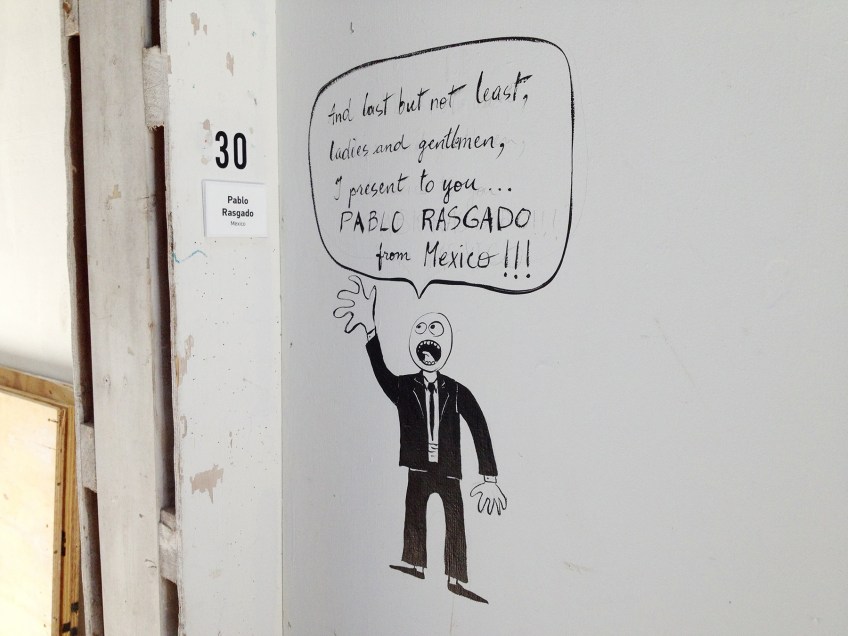 30
Pablo
Rasgado
Mexico
And last but not least,
ladies and gentlemen,
I present to you...
PABLO RASGADO
from Mexico!!!